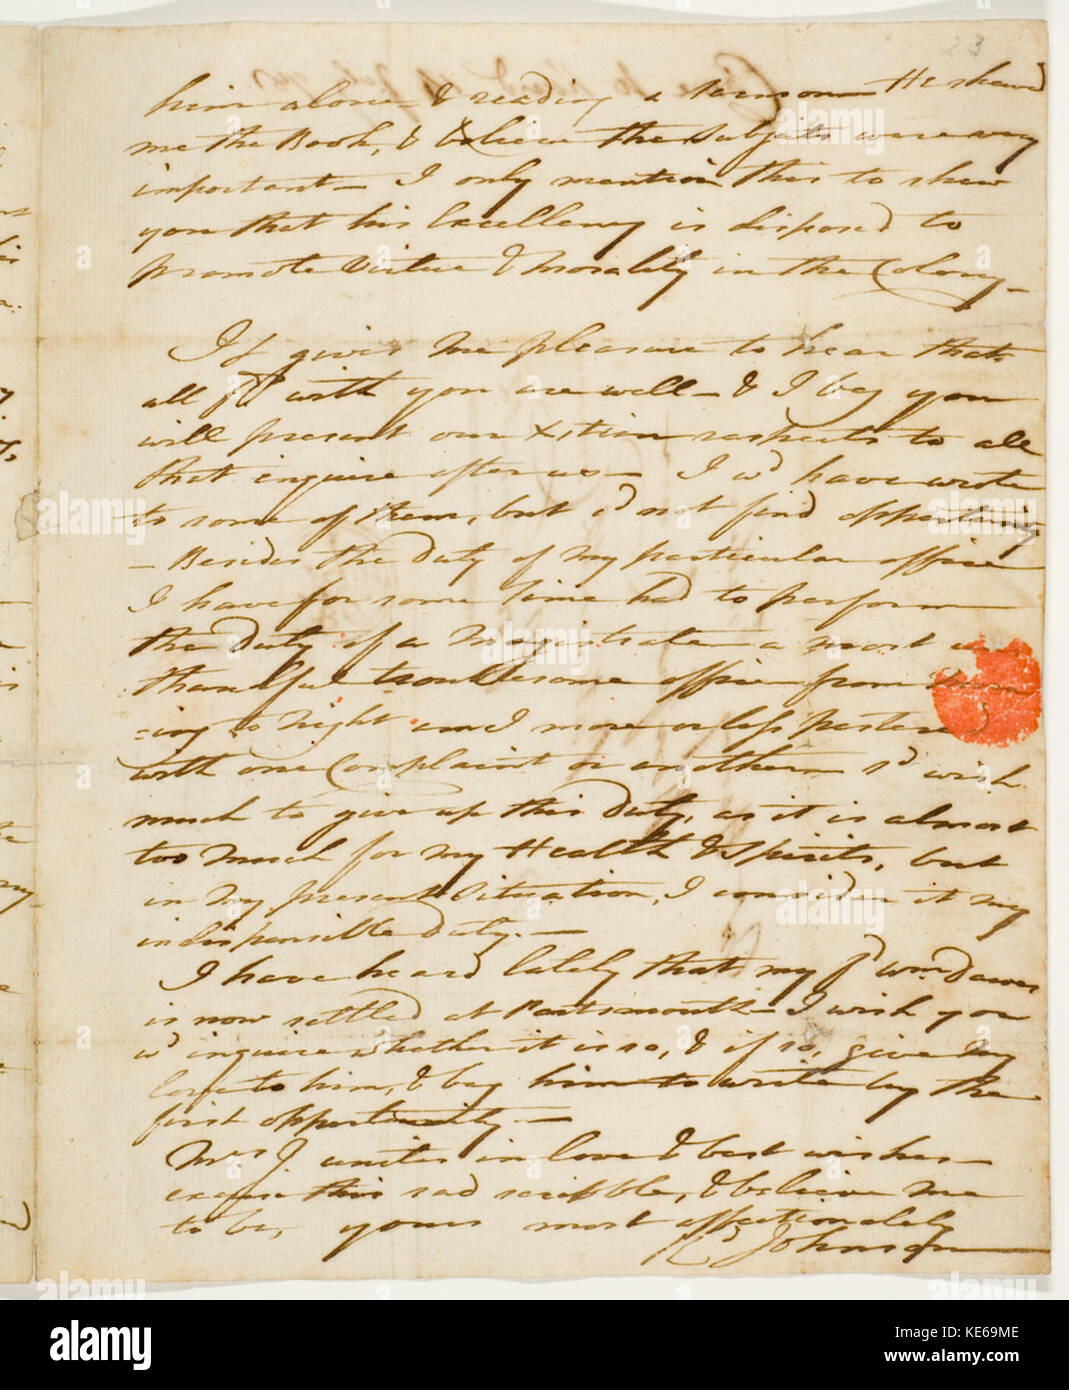 23
him alone - & reading a Sermon - He shew'd
me the Book, & believe the Subjects were very
important - I only mention this to shew
you that his Excellency is disposed to
promote Virtue & Morality in the Colony -
If gives me pleasure to hear that
all fds with you are well - & I beg you
will present our Xstian respects to all
that enquire after us - I wd have wrote
to some of them, but cd not find opportunity
- Besides the duty of my particular office
I have for some time had to perform
the Duty of a Magistrate a most un
thankful troublesome office from morn
=ing to Night am I more or less pestered
with one Complaint or another I sd wish
much to give up this Duty, as it is almost
too much for my Health & Spirits, but
in my present Situation, I consider it my
indispensible duty. -
I have heard lately that my fd Wm Dawes
is now settled at Portsmouth - I wish you
wd inquire whether it is so, & if so, give my
love to him, & beg him to write by the
first opportunity -
Mrs J. unites in love & best wishes -
excuse this sad scribble, & believe me
to be, yours most affectionately
Rd Johnson
alamy
alamy
alamy
alamy
alamy
alamy stock photo
KE69ME
www.alamy.com